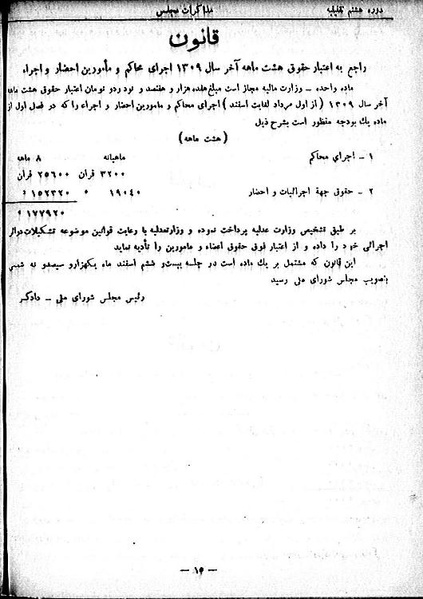 دوره هشتم تقنینیه مذاکرات مجلس
قانون
راجع به اعتبار حقوق هشت ماهه آخر سال ۱۳۰۹ اجرای محاکم و مأمورین احضار و اجراء
ماده واحده – وزارت مالیه مجاز است مبلغ هفده هزار و هفتصد و نود و دو تومان اعتبار حقوق هشت ماهه
آخر سال ۱۳۰۹ ( از اول مرداد لغایت اسفند ) اجرای محاکم و مامورین احضار و اجراء را که در فصل اول از
ماده یک بودجه منظور است بشرح ذیل
(هشت ماهه)
ماهیانه ۸ ماهه
۱ – اجرای محاکم ۳۲۰۰ قران ۲۵۶۰۰ قران
۲ – حقوق جهة اجرائیات و احضار ۱۹۰۴۰ » ۱۵۲۳۲۰ »
۱۷۷۹۲۰ »
بر طبق تشخیص وزارت عدلیه پرداخت نموده و وزارت عدلیه با رعایت قوانین موضوعه تشکیلات دوائر
اجرائی خود را داده و از اعتبار فوق حقوق اعضاء و مامورین را تأدیه نماید
این قانون که مشتمل بر یک ماده است در جلسه بیست و ششم اسفند ماه یکهزار و سیصد و نه شمسی
بتصویب مجلس شورای ملی رسید
رئیس مجلس شورای ملی – دادگر
– ۱۵ –